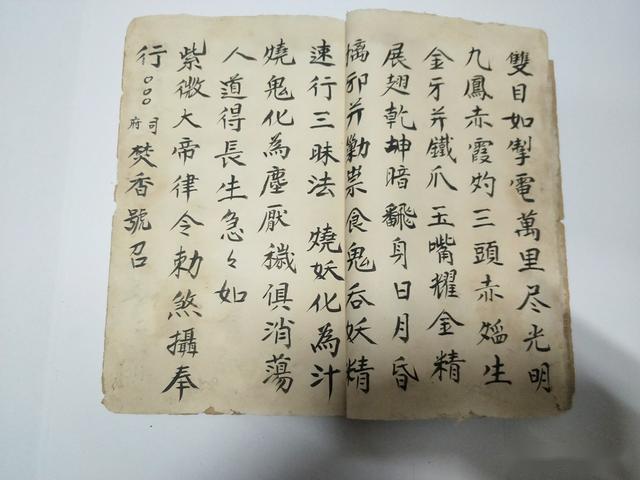 雙目如掣電萬里尽光明
九鳳赤霞灼三頭赤生
金牙并鐵爪玉嘴耀金精
展翅乾坤暗翻身日月昏
摛邪并勦祟食鬼吞妖精
速行三昧法 燒妖化為汁
燒鬼化為塵厭穢俱消蕩
人道得長生急々如
紫微大帝律令勅煞攝奉
行○○○府司焚香號召